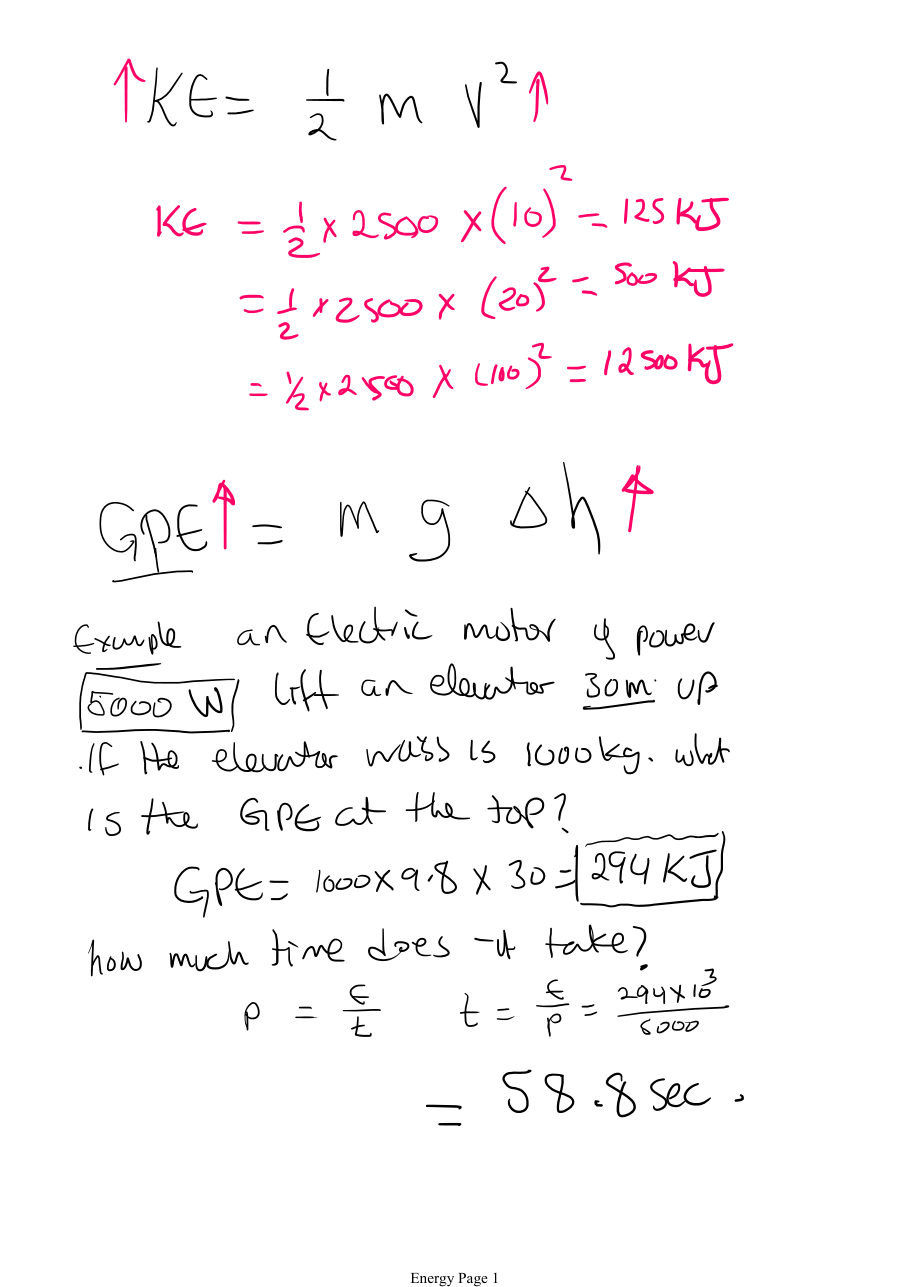 ↑KE = 1/2 m v² ↑
KE = 1/2 × 2500 × (10)² = 125 KJ
= 1/2 × 2500 × (20)² = 500 KJ
= 1/2 × 2500 × (100)² = 12500 KJ
GPE↑ = m g Δh ↑
Example an Electric motor of power
5000 W lift an elevator 30m up
.If the elevator mass is 1000kg. what
is the GPE at the top?
GPE = 1000 × 9.8 × 30 = 294 KJ
how much time does it take?
P = E/t t = E/P = 294×10³/5000
= 58.8 sec.
Energy Page 1